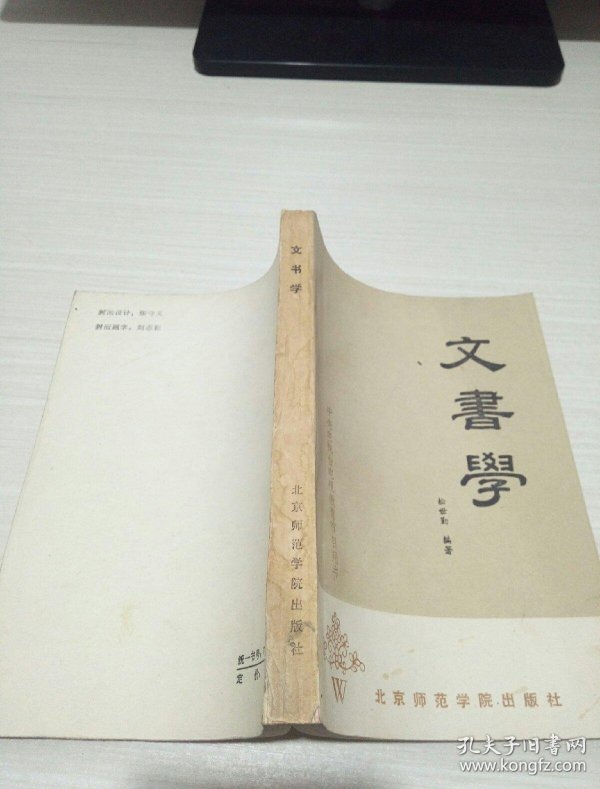 文书学
北京师范学院出版社
封面设计：
封面题字：
统一书号：
定 价：
文書學
松世勤 编著
W
北京师范学院出版社
孔夫子旧书网
www.kongfz.com